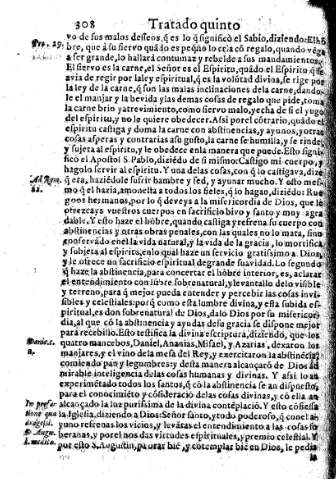 308 Tratado quinto
vo de sus malos desseos, q̃ es lo q̃ significò el Sabio, diziendo: El hõ
Pro. 29. bre, que à su siervo quãdo es peq̃ño lo cria cõ regalo, quando vẽga
a ser grande, lo hallarà contumaz y rebelde a sus mandamientos.
El siervo es la carne, el señor es el Espiritu, quãdo el Espiritu q̃ se
avia de regir por la ley espiritual, q̃ es la volũtad divina, se rige por
la ley de la carne, q̃ son las malas inclinaciones de la carne, dando
le el manjar y la bevida y las demas cosas de regalo que pide, toma
la carne brio y atrevimiento, como siervo malo, y echa de si el yugo
del espiritu, y no le quiere obedecer. Assi por el cõtrario, quãdo el
espiritu castiga y doma la carne con abstinencias, y ayunos, y otras
cosas asperas y contrarias a su gusto, la carne se humilla, y se rinde
y sujeta al espiritu, y le obedece en la manera que puede. Esto signi
ficò el Apostol S. Pablo, diziẽdo de si mismo: Castigo mi cuerpo, y
hagolo servir al espiritu. Y una de las cosas, con q̃ lo castigava, dize
q̃ era, haziẽdole sufrir hambre y sed, y ayunar mucho. Y esto mes-
mo q̃ el hazia, amonesta a todos los fieles, q̃ lo hagan, diziẽdo: Rue
goos hermanos, por lo q̃ deveys a la misericordia de Dios, que le
ofrezcays vuestros cuerpos en sacrificio bivo y santo y muy agra
dable. Y esto haze el hõbre, quando castiga y refrena su cuerpo con
abstinencias y otras obras penales, con las quales no lo mata, sino
conservado en el la vida natural, y la vida de la gracia, lo mortifica
y subjeta al espiritu, en lo qual haze un servicio gratissimo a Dios,
y le ofrece un sacrificio espiritual de grande suavidad. Lo segundo
q̃ haze la abstinencia, para concertar el hõbre interior, es, aclarar
el entendimiento con lũbre sobrenatural, y levantallo de lo visible
y terreno, para q̃ mejor pueda entender y percebir las cosas invisi
bles y celestiales: por q̃ como esta lumbre divina, y esta subida es-
piritual, es don sobrenatural de Dios, dalo Dios por su misericor
dia, al que cõ la abstinencia y ayudas de su gracia se dispone mejor
para recebillo. Esto testifica la divina escriptura, diziẽdo, que los
quatro mancebos, Daniel, Ananias, Misael, y Azarias, dexaron los
manjares, y el vino de la mesa del Rey, y exercitaron la abstinẽcia
comiendo pan y legumbres: y desta manera alcançarõ de Dios ad
mirable inteligencia de las cosas humanas y divinas. Y assi lo an
experimẽtado todos los santos, q̃ cõ la abstinencia se an dispuesto,
para el conocimiẽto y cõsideraciõ de las cosas divinas, y cõ ella an
alcançado la luz purissima de la divina contẽplaciõ. Y esto cõfiessa
la Iglesia, diziendo a Dios: Señor santo, y todo poderoso, q̃ con el a-
yuno refrenas los vicios, y levãtas el entendimiento a las cosas so
beranas, y por el nos das virtudes espirituales, y premio celestial. Y
por esto S. Augustin, pa orar biẽ, y cõtemplar biẽ en Dios, le pedia